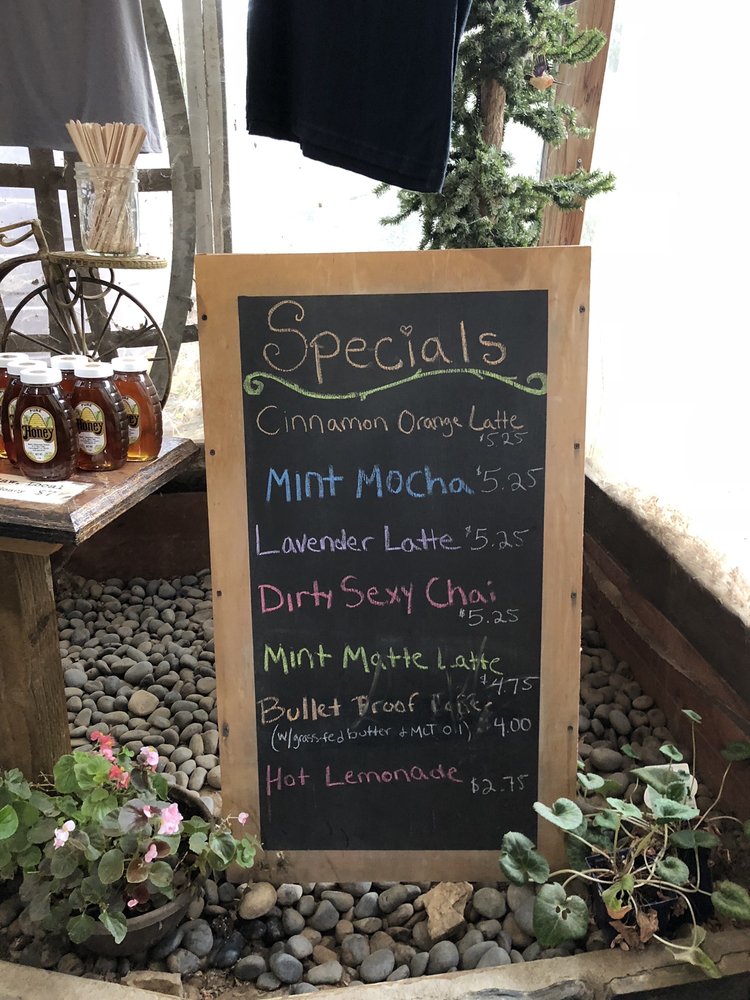 Specials
Cinnamon Orange Latte
$5.25
Mint Mocha $5.25
Lavender Latte $5.25
Dirty Sexy Chai
$5.25
Mint Matte Latte
$4.75
Bullet Proof Coffee
(w/grass-fed butter & MCT Oil) $4.00
Hot Lemonade $2.75
PURE
Honey
Honey $7